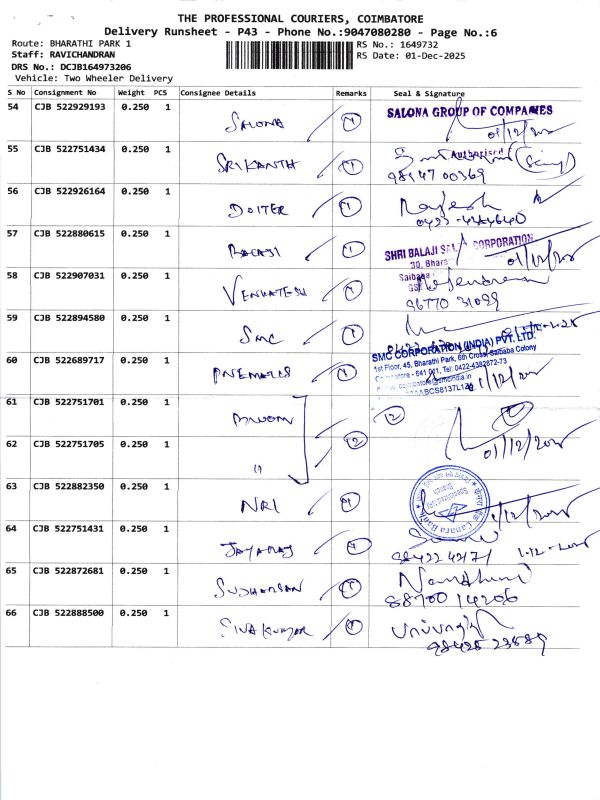 THE PROFESSIONAL COURIERS, COIMBATORE
Delivery Runsheet - P43 - Phone No.:9047080280 - Page No.:6
Route: BHARATHI PARK 1
RS No.: 1649732
Staff: RAVICHANDRAN
RS Date: 01-Dec-2025
DRS No.: DCJB164973206
Vehicle: Two Wheeler Delivery
S No Consignment No Weight PCS Consignee Details Remarks Seal & Signature
54 CJB 522929193 0.250 1 SALONA 1 SALONA GROUP OF COMPANIES
Authorised
55 CJB 522751434 0.250 1 SRIKANTH 1
98147 00369
56 CJB 522926164 0.250 1 DOITER 1 Rajesh
57 CJB 522880615 0.250 1 BALAJI SHRI BALAJI CORPORATION
58 CJB 522907031 0.250 1 VENKATESH 1
96770 31099
59 CJB 522894580 0.250 1 SMC
SMC CORPORATION (INDIA) PVT. LTD.
1st Floor, 45, Bharathi Park, 6th Cross, Saibaba Colony
Coimbatore - 641 011, Tel: 0422-4382872-73
60 CJB 522689717 0.250 1 1
61 CJB 522751701 0.250 1 12
01/12/2025
62 CJB 522751705 0.250 1 " 12
63 CJB 522882350 0.250 1 NRI 1 Canara Bank
64 CJB 522751431 0.250 1 JAYARAJ 1
98422 42171 1-12-2025
65 CJB 522872681 0.250 1 SUDHARSAN 1 Nandhini
88700 14206
66 CJB 522888500 0.250 1 SIVAKUMAR 1
98428 23889